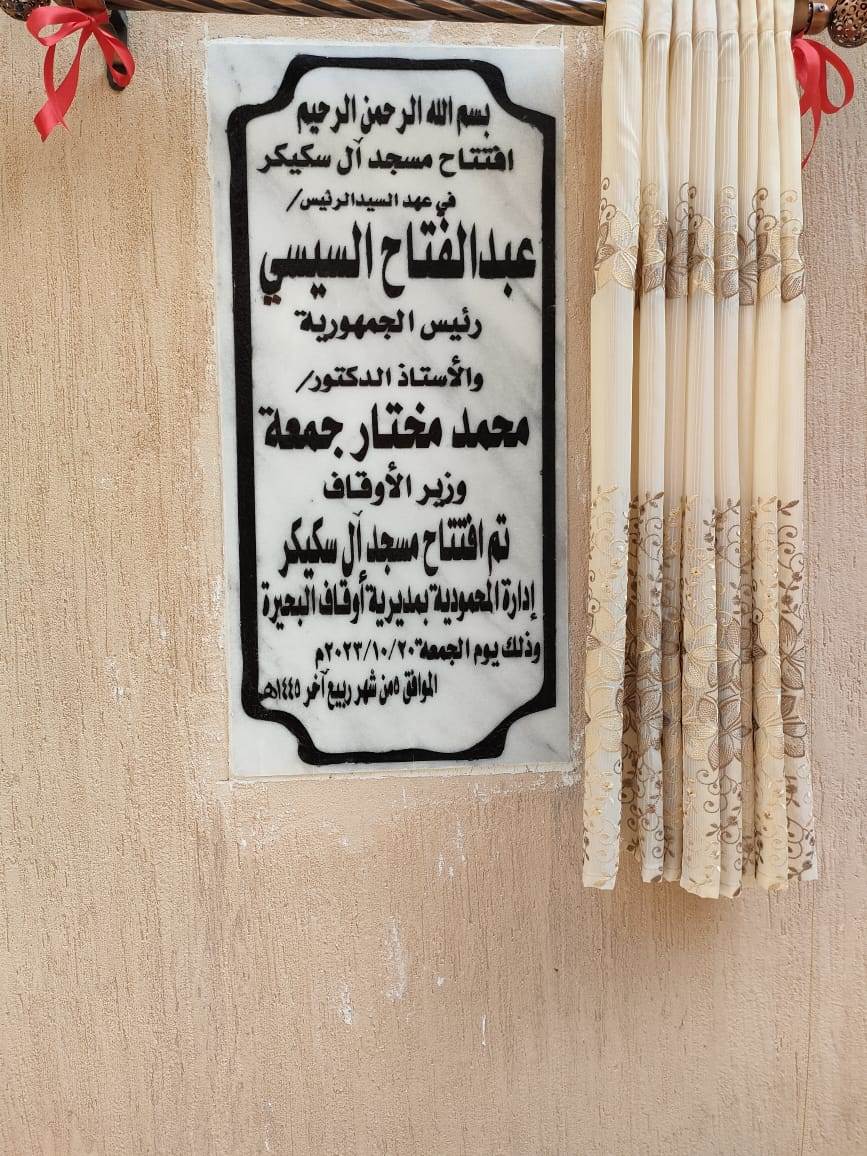 بسم الله الرحمن الرحيم
افتتاح مسجد آل سكيكر
في عهد السيدالرئيس/
عبدالفتاح السيسي
رئيس الجمهورية
والأستاذ الدكتور/
محمد مختار جمعة
وزير الأوقاف
تم افتتاح مسجد آل سكيكر
إدارة المحمودية بمديرية أوقاف البحيرة
وذلك يوم الجمعة ٢٠٢٣/١٠/٢٠م
الموافق ٥من شهر ربيع آخر ١٤٤٥هـ